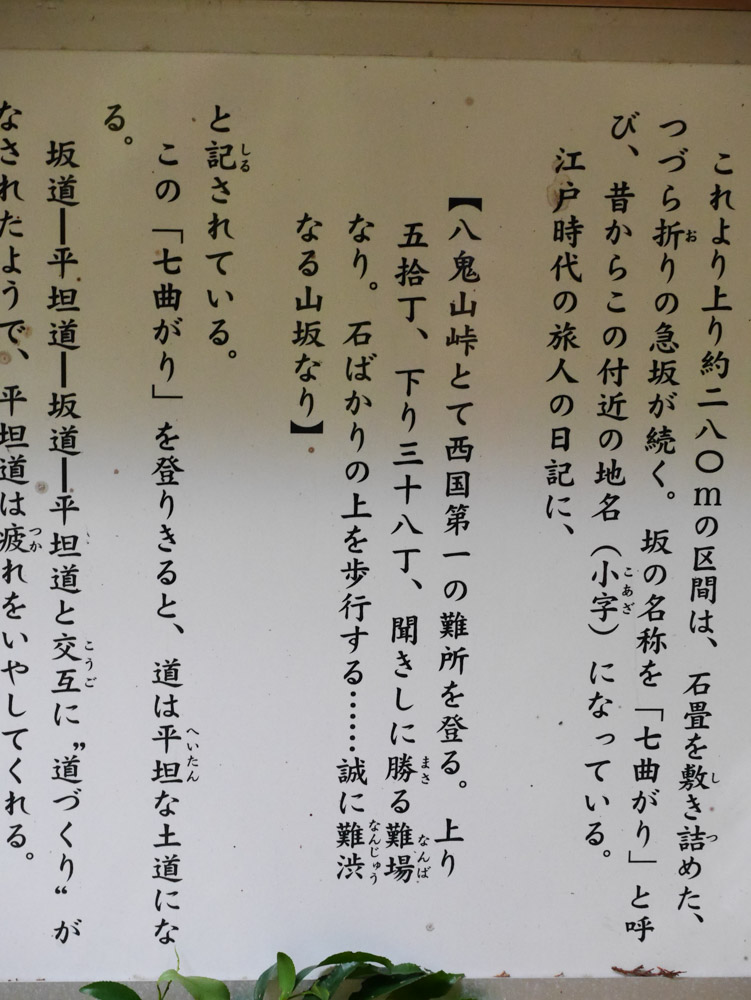 これより上り約二八〇mの区間は、石畳を敷き詰めた、
つづら折りの急坂が続く。坂の名称を「七曲がり」と呼
び、昔からこの付近の地名（小字）になっている。
江戸時代の旅人の日記に、
【八鬼山峠とて西国第一の難所を登る。上り
五拾丁、下り三十八丁、聞きしに勝る難場
なり。石ばかりの上を歩行する……誠に難渋
なる山坂なり】
と記されている。
この「七曲がり」を登りきると、道は平坦な土道にな
る。
坂道―平坦道―坂道―平坦道と交互に〝道づくり〟が
なされたようで、平坦道は疲れをいやしてくれる。